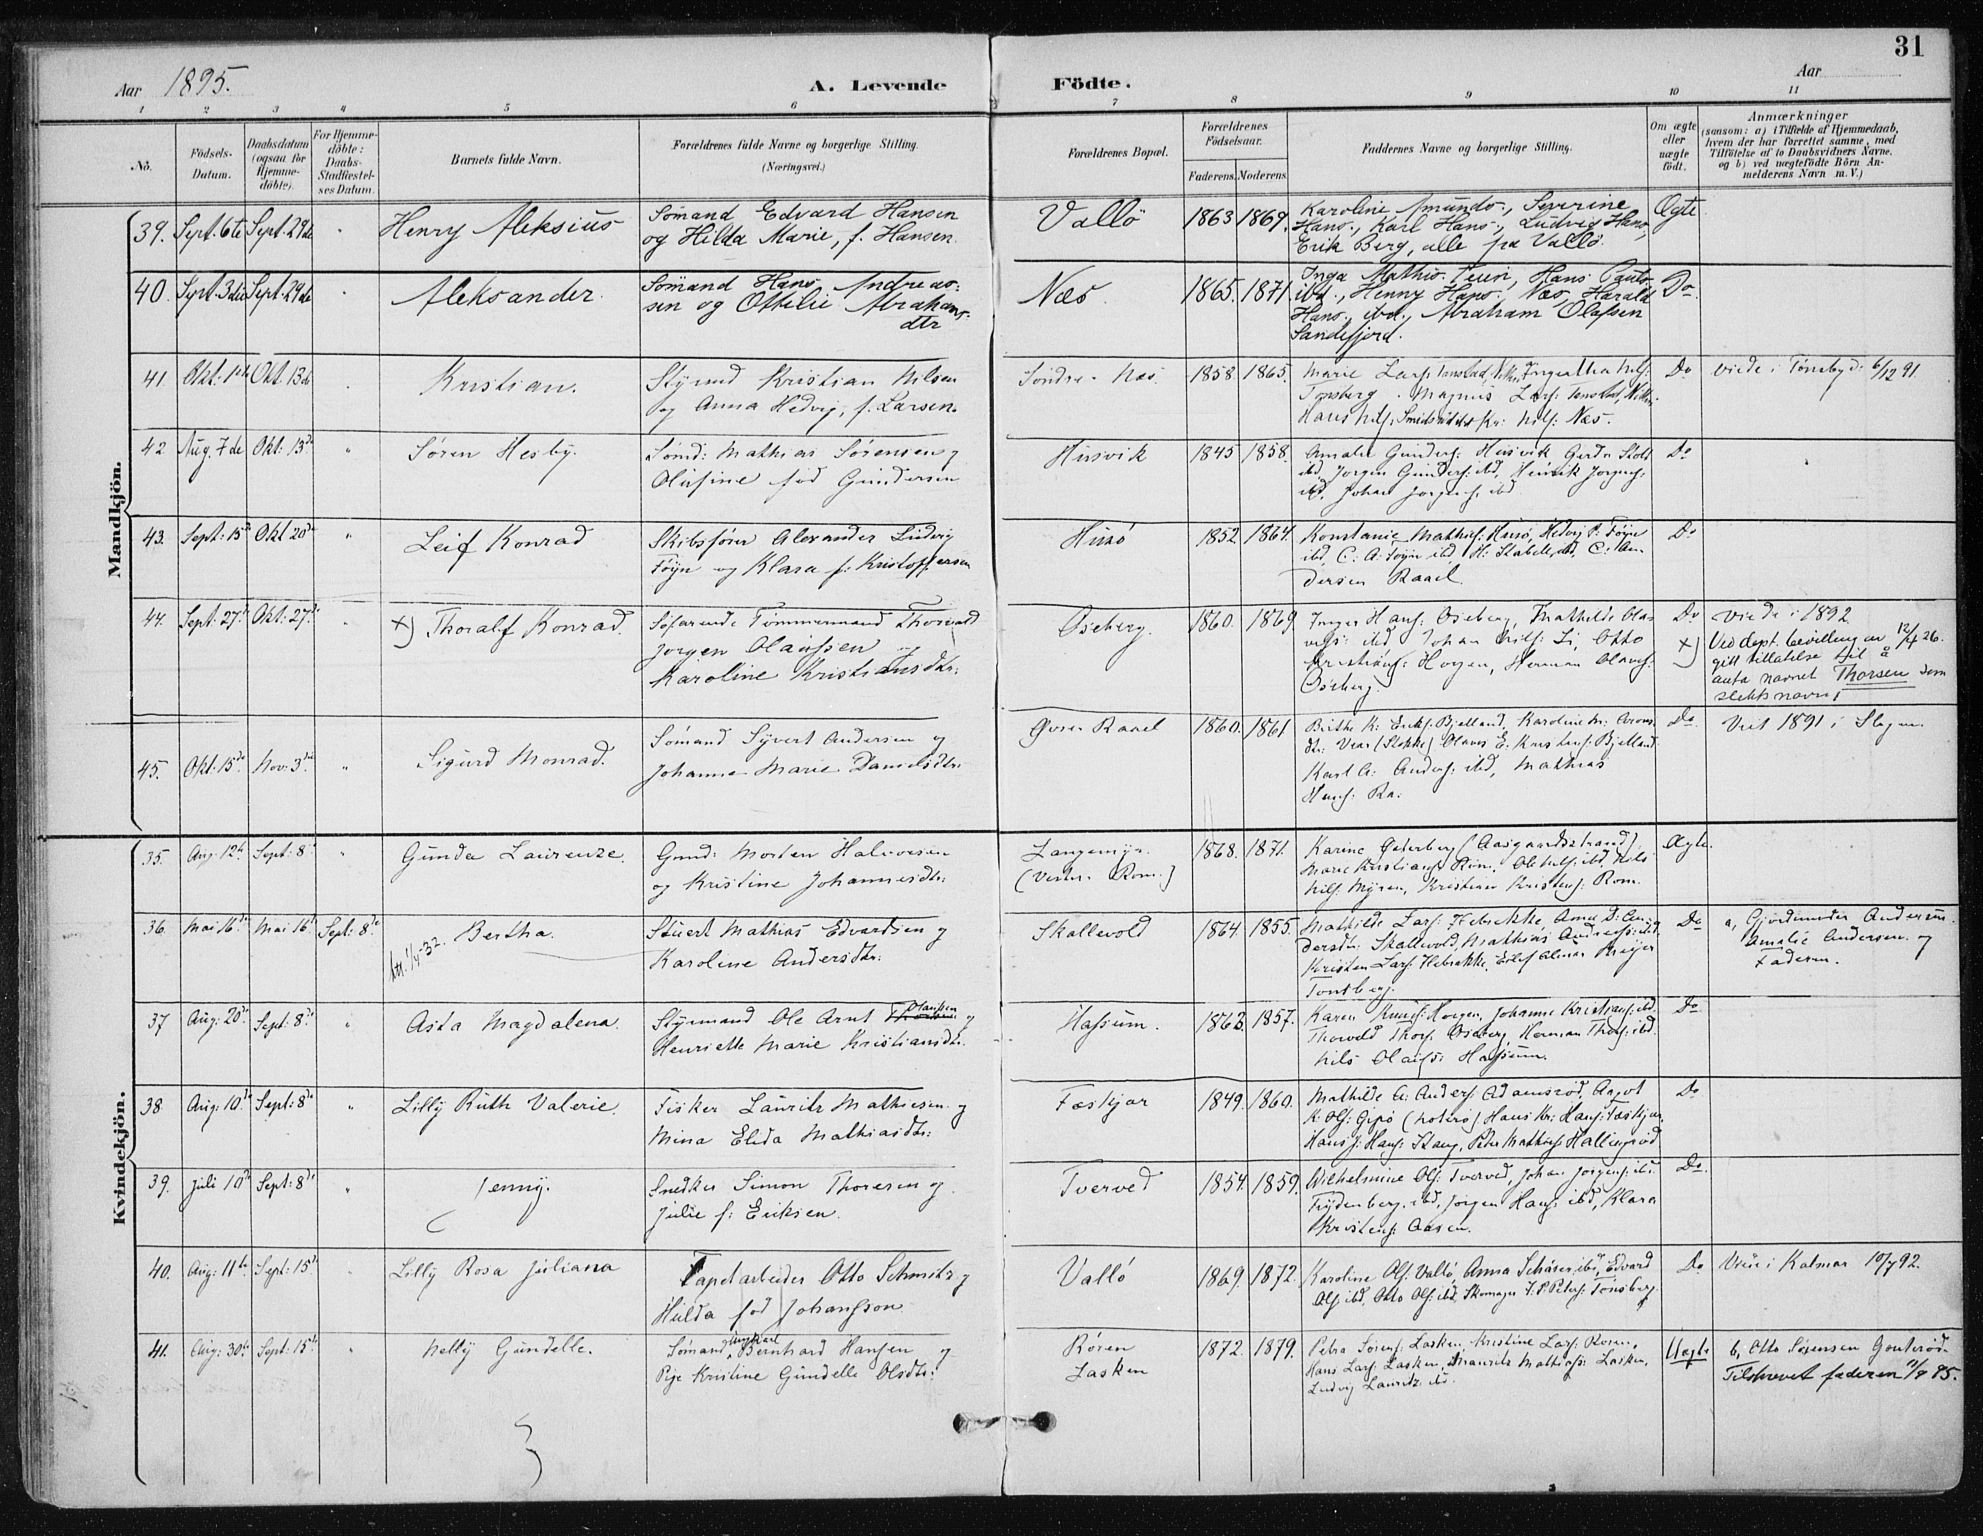 31
Aar 1895.
A. Levende Födte.
Aar
1 2 3 4 5 6 7 8 9 10 11
No.
Födsels-Datum.
Daabsdatum (ogsaa for Hjemme-döbte).
For Hjemme-döbte: Daabs-Stadfæstel-ses Datum.
Barnets fulde Navn.
Forældrenes fulde Navne og borgerlige Stilling. (Næringsvei.)
Forældrenes Bopæl.
Forældrenes Födselsaar.
Faderens. Moderens.
Faddernes Navne og borgerlige Stilling.
Om ægte eller uægte födt.
Anmærkninger
(saasom: a) i Tilfælde af Hjemmedaab, hvem der har forrettet samme, med Tilföielse af to Daabsvidners Navne. og b) ved uægtefödte Börn An-melderens Navn m. V.)
Mandkjön.
39. Sept. 6te Sept. 29de " Henry Aleksius
Sömand Edvard Hansen
og Hilda Marie, f. Hansen.
Vallö 1863 1869.
Karoline Amunds., Severine
Hans., Karl Hans., Ludvig Hans.,
Erik Berg, alle fra Vallö.
Ægte
40. Sept. 3die Sept. 29de " Aleksander.
Sömand Hans Andreas-
sen og Ottilie Abrahams-
dtr
Næs. 1865. 1871
Inga Mathis. , Hans Pauls.
ibd., Henny Hans. Næs, Harald
Hans., ibd., Abraham Olafsen
Sandefjord.
Do.
41. Okt: 1ste Okt. 13de " Kristian.
Styrmd Kristian Nilsen
og Anna Hedvig, f. Larsen.
Söndre Næs. 1858. 1865.
Marie Lars:
Tønsberg. Magnus Lars:
Hans Nils: Kr: Nils: Næs.
Do viede i Tønsb. d: 6/12 91.
42 Aug. 7de Okt: 13de " Søren Hesby.
Sømd: Mathias Sørensen &
Olufine fød Gundersen
Husvik 1845 1858.
Amalie Gunders: Husvik Gerda
ibd, Jørgen Gunders: ibd, Henrik Jørgens:
ibd, Johan Jørgens: ibd
Do
43. Sept: 15de Okt 20de " Leif Konrad
Skibsfører Alexander Ludvig
Føyn og Klara f: Kristoffersen
Husø 1852 1864.
Konstanse Mathis: Husø, Hedvig P. Føyn
ibd, C. A. Føyn ibd, H: Stabell, ibd, C. An
dersen Raael
Do
44. Sept: 27de Okt: 27de " x) Thoralf Konrad.
Søfarende Tømmermand Thorvald
Jørgen Olaussen og
Karoline Kristiansdtr:
Oseberg. 1860. 1869
Inger Hans: Oseberg, Mathilde Olaus
: ibd Johan Nils: Li, Otto
Kristians: Horgen, Herman Olaus:
Oseberg.
Do viede i 1892
x) Ved dept. bevilling av 12/4 26.
gitt tillatelse til å
anta navnet Thorsen som
slektsnavn.
45. Okt: 15de Nov: 3die " Sigurd Monrad.
Sømand Syvert Andersen og
Johanne Marie Danielsdtr:
Øvre Raael 1860. 1861
Berthe K: Eriks: Bjelland, Karoline M: Arons
dtr: Vear (Stokke) Olaus E. Kristens: Bjelland
Karl A: Anders: ibd, Mathias
Hans: Ra:
Do. Viet 1891 i Slagen.
Kvindekjön.
35. Aug. 12te Sept: 8de " Gunda Laurenze.
Gmd: Morten Halvorsen
og Kristine Johannesdtr:
Langemyr. (Vestre Rom.) 1868. 1871.
Karine Østerberg (Aasgaardsstrand).
Marie Kristians: Rom, Ole Nils: ibd, Nils
Nils: Myren, Kristian Kristens: Rom.
Ægte
36. Mai 16de Mai 16de Sept: 8de Bertha.
Att. 1/4-32.
Stuert Mathias Edvardsen og
Karoline Andersdtr:
Skallevold 1864. 1855.
Mathilde Lars: Hebække, Anna D: An
dersdtr: Skallevold, Mathias Anders: ibd,
Kristen Lars: Hebække,
Tønsberg.
Do a, Gjordemoder Andersen.
Amalie Andersen og
Faderen.
37 Aug: 20de Sept: 8de " Asta Magdalena.
Styrmand Ole Arnt Olaussen og
Henriette Marie Kristiansdtr:
Hassum. 1862. 1857.
Karen Knuds: Horgen, Johanne Kristians: ibd.
Thorvald Thors: Oseberg, Herman Thors: ibd.
Nils Olaus: Hassum.
Do
38. Aug: 10de Sept: 8de " Lilly Ruth Valerie.
Fisker Lauritz Mathiesen og
Mina Elida Mathiasdtr:
Fæskjær 1849. 1860.
Mathilde A: Anders: Adamsrød, Aagot
K: Ols: Gipø (Nøterø) Hans Kr: Hans: Fæskjær,
Hans J: Hans: Stang, Peter Mathis: Hallingsrød
Do
39. Juli 10de Sept: 8de " Jenny.
Snedker Simon Thoresen og
Julie f: Eriksen.
Tverved 1854. 1859.
Wilhelmine Ols: Tverved, Johan Jørgens: ibd.
Frydenberg, ibd, Jørgen Hans: ibd, Klara
Kristens: Aasen.
Do.
40. Aug: 11te Sept: 15de " Lilly Rosa Juliana
Tapetarbeider Otto Schmitz og
Hulda fød Johansson
Vallø 1869. 1872.
Karoline Ols: Vallø, Anna Schäser, ibd, Edvard
Ols: ibd, Otto Ols: ibd, Skomager I. P. Peters: Tønsberg.
Do Viede i Kalmar 10/7 92.
41. Aug: 30te Sept: 15de Nelly Gundelle.
Sømand Bernhard Hansen og
Pige Kristine Gundelle Olsdtr:
Røren
Lasken
1872. 1879.
Petra Sørens: Lasken, Kristine Lars: Roren,
Hans Lars: Lasken, Mauritz Mathias: Lasken,
Ludvig Lauritz: ibd.
Uægte b, Otto Sørensen Gonterød.
Tilskrevet faderen 11/9 95.